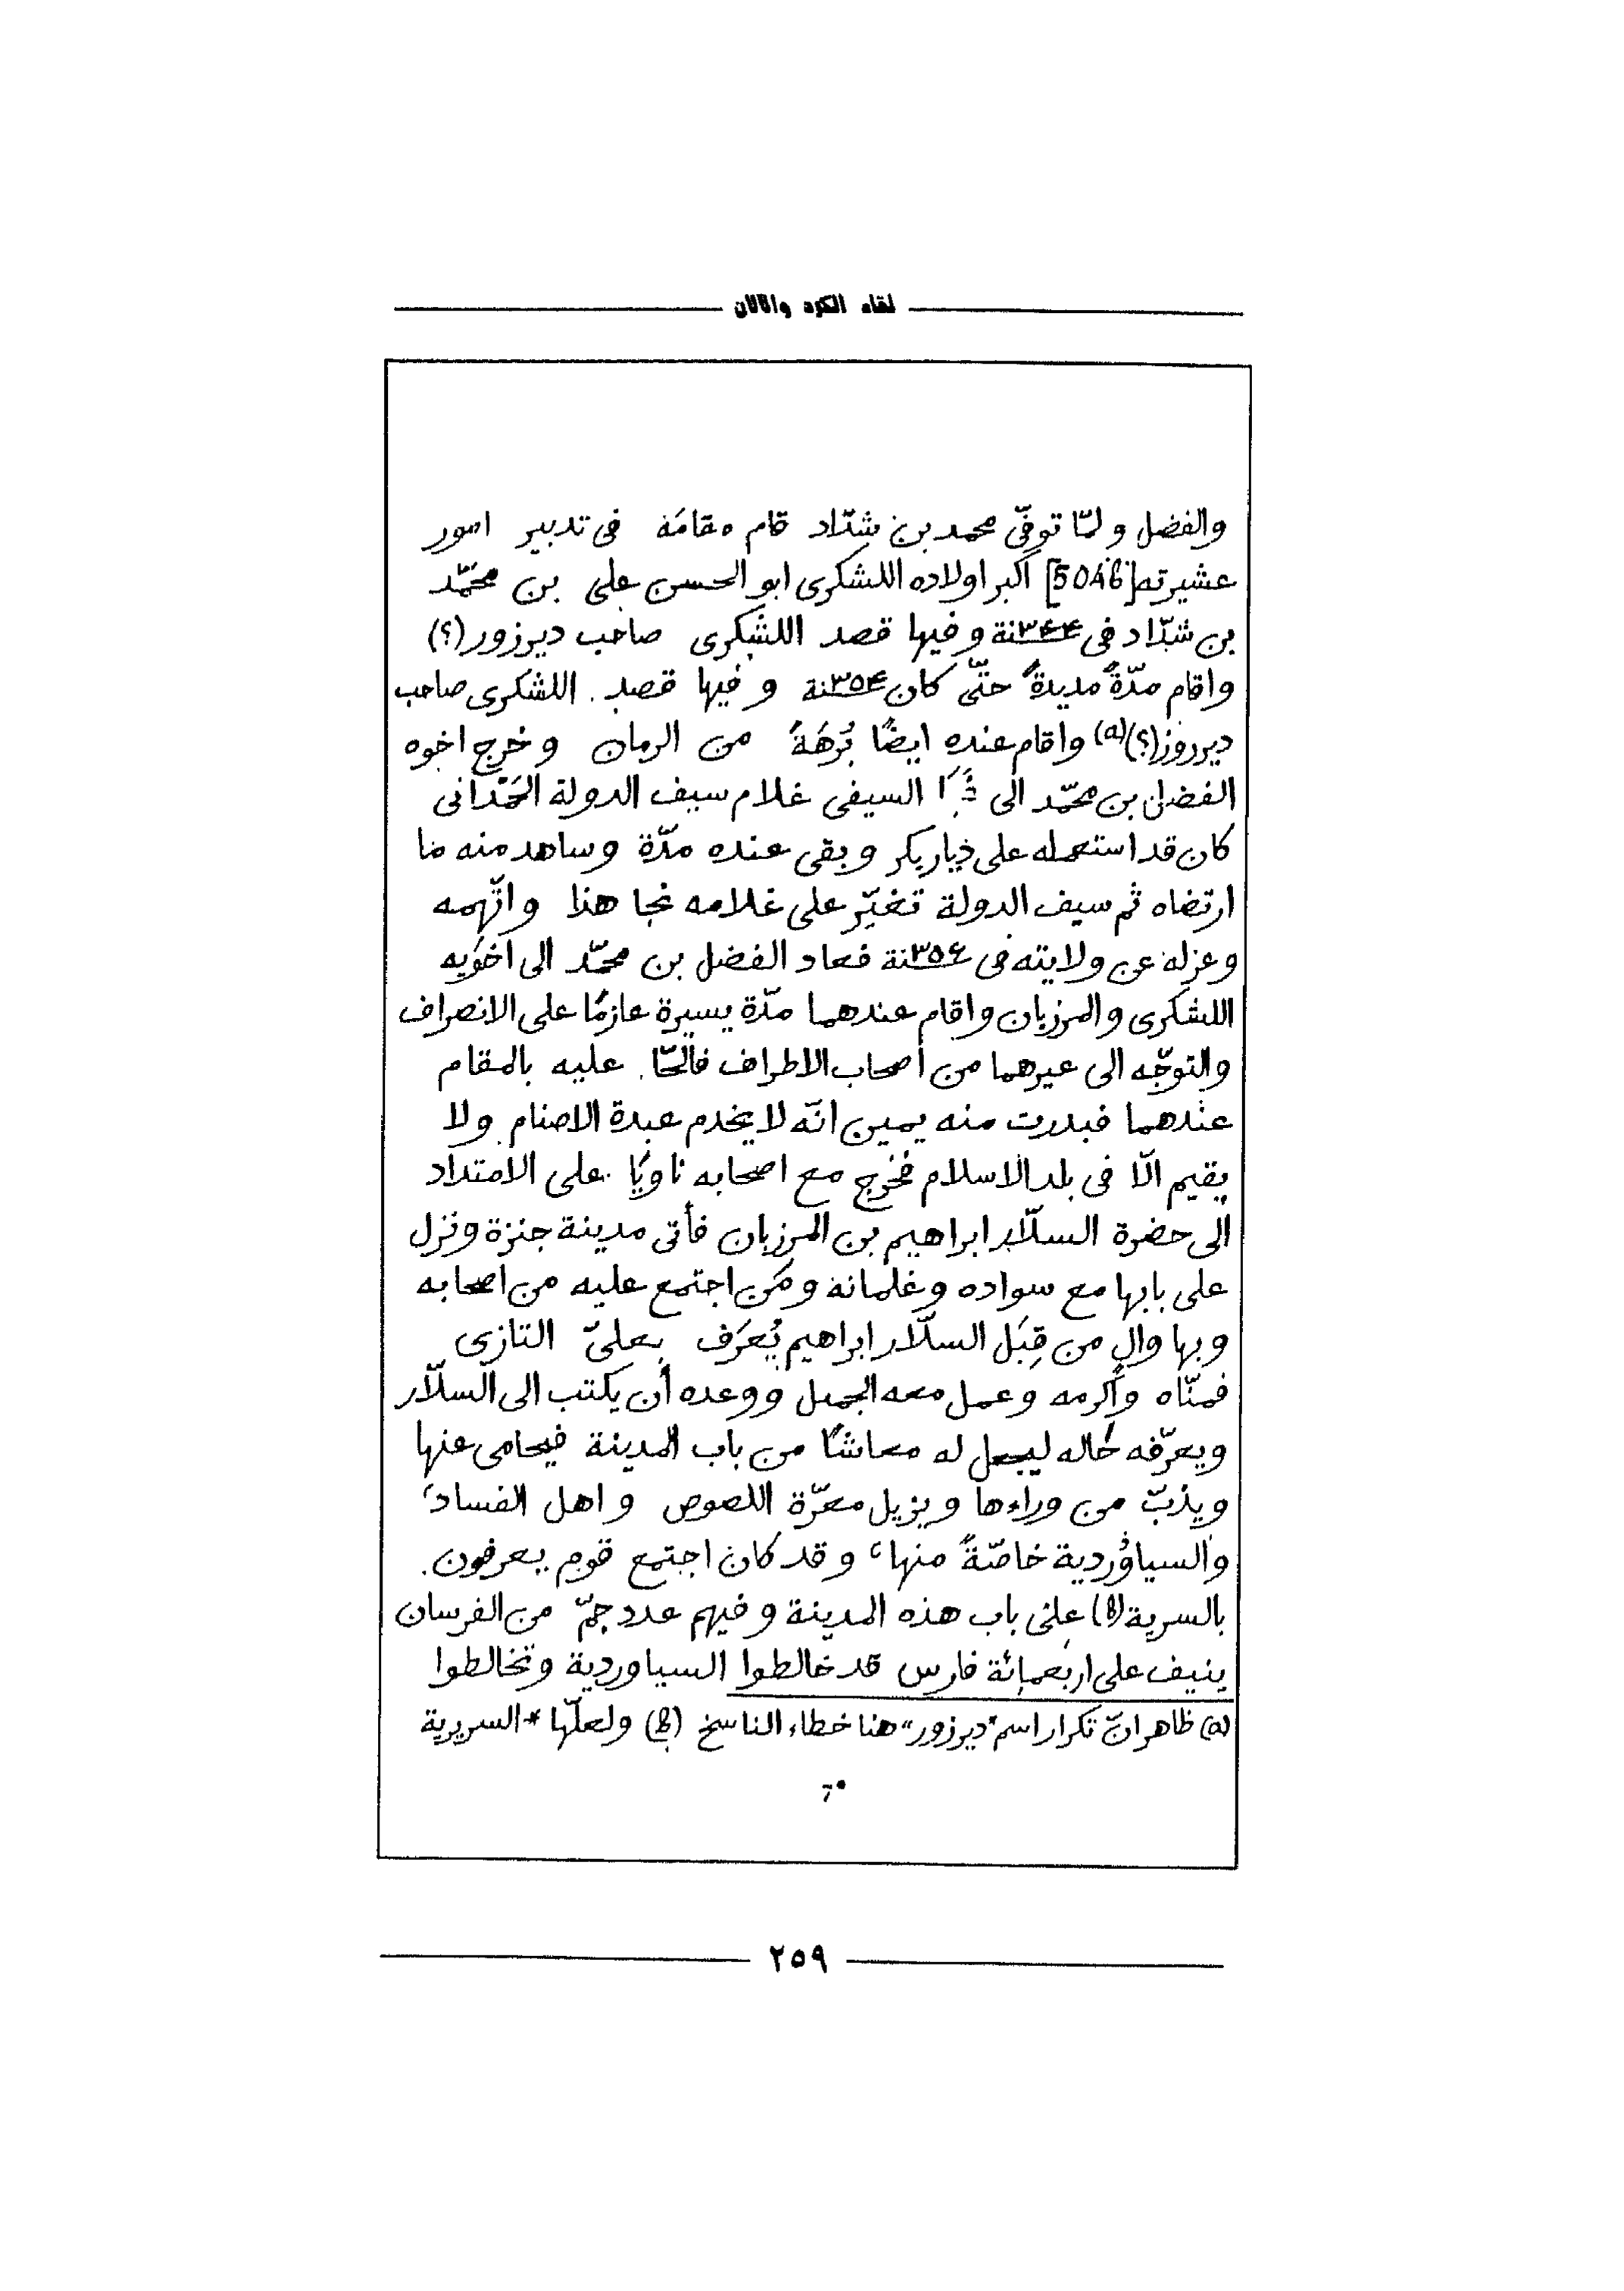 لقاء الكرد واللان
والفضل ولمّا توفّى محمد بن شدّاد قام مقامَه فى تدبير امور
عشيرته [504b] اكبر اولاده اللشكرى ابو الحسن على بن محمّد
بن شدّاد فى سنة ٣٤٤ وفيها قصد اللشكرى صاحب ديرزور (؟)
واقام مدّةً مديدةً حتّى كان سنة ٣٥٤ وفيها قصد اللشكرى صاحب
ديرروز (؟) (a) واقام عنده ايضًا بُرهَةً من الرمان وخرج اخوه
الفضل بن محمّد الى السيفى غلام سيف الدولة الحَمْدانى
كان قد استعمله على ديار بكر وبقى عنده مدّة وساهد منه ما
ارتضاه ثم سيف الدولة تغيّر على غلامه نجا هذا واتّهمه
وعزله عن ولايته فى سنة ٣٥٤ فعاد الفضل بن محمّد الى اخوَيه
اللشكرى والمرزبان واقام عندهما مدّة يسيرة عازمًا على الانصراف
والتوجّه الى عيرهما من أصحاب الاطراف فالحّا عليه بالمقام
عندهما فبدرت منه يمين انّه لا يخدم عبدة الاصنام ولا
يقيم الّا فى بلد الاسلام فخرج مع اصحابه ناويًا على الامتداد
الى حضرة السلّار ابراهيم بن المرزبان فأتى مدينة جنزة ونزل
على بابها مع سواده وغلمانه ومَن اجتمع عليه من اصحابه
وبها والٍ من قِبَل السلّار ابراهيم يُعرَف بعلىّ التازى
فمنّاه وأكرمه وعمل معه الجميل ووعده أن يكتب الى السلّار
ويعرّفه حاله ليجعل له معاشًا من باب المدينة فيحامى عنها
ويذبّ من وراءها ويزيل معرّة اللصوص واهل الفساد،
والسياوُردية خاصّةً منها، وقد كان اجتمع قوم يعرفون
بالسرية (b) على باب هذه المدينة وفيهم عدد جمّ من الفرسان
ينيف على اربعمائة فارس قد خالطوا السياوردية وتخالطوا
(a) ظاهر انّ تكرار اسم "ديرزور" هنا خطاء الناسخ (b) ولعلّها * السريرية
٢٥٩